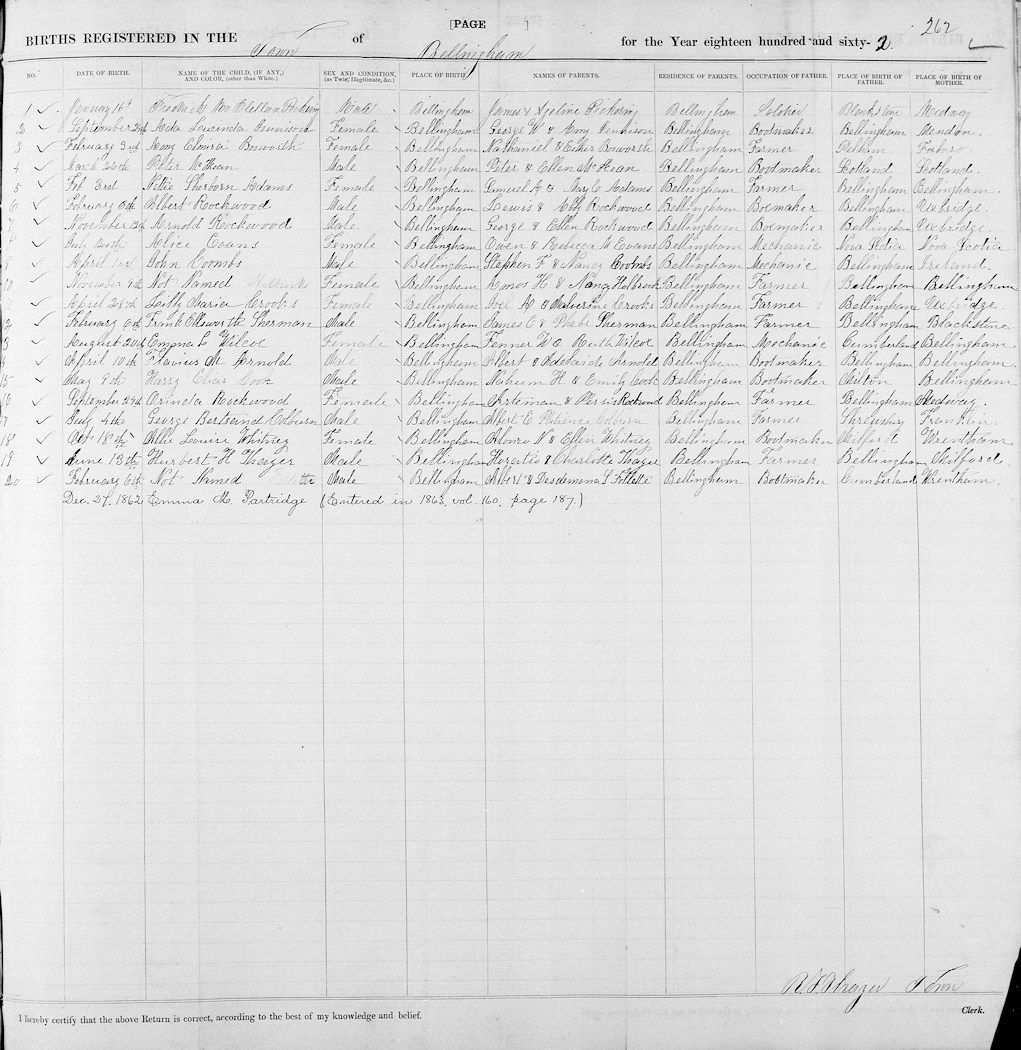 [PAGE ] 262
BIRTHS REGISTERED IN THE Town of Bellingham for the Year eighteen hundred and sixty-2.
NO. DATE OF BIRTH. NAME OF THE CHILD, (IF ANY,) AND COLOR, (other than White.) SEX AND CONDITION, (as Twin, Illegitimate, &c.) PLACE OF BIRTH. NAMES OF PARENTS. RESIDENCE OF PARENTS. OCCUPATION OF FATHER. PLACE OF BIRTH OF FATHER. PLACE OF BIRTH OF MOTHER.
1 January 16th Pickering Male Bellingham James & Adeline Pickering Bellingham Soldier Blackstone Medway
2 September Ada Lucinda Dennison Female Bellingham George W & Amy Dennison Bellingham Bootmaker Bellingham Mendon.
3 February 3rd Bosworth Female Bellingham Nathaniel & Esther Bosworth Bellingham Farmer Pelham Foxboro
4 March 25th Peter McKean Male Bellingham Peter & Ellen McKean Bellingham Bootmaker Scotland Scotland.
5 Feb 3rd Nettie Sherborn Adams Female Bellingham Lemuel A & Mary C Adams Bellingham Farmer Bellingham Bellingham.
6 February 6th Albert Rockwood Male Bellingham Lewis & Abby Rockwood Bellingham Botmaker Bellingham Uxbridge.
November Arnold Rockwood Male Bellingham George & Ellen Rockwood Bellingham Botmaker Bellingham Uxbridge.
July 20th Alice Evans Female Bellingham Owen & Rebecca W Evans Bellingham Mechanic Nova Scotia Nova Scotia
April John Coombs Male Bellingham Stephen F & Nancy Coombs Bellingham Mechanic Bellingham Ireland.
November Not Named Holbrook Female Bellingham Amos H & Nancy Holbrook Bellingham Farmer Bellingham Bellingham
April 28th Maria Crooks Female Bellingham Joel A & Malvertine Crooks Bellingham Farmer Bellingham Uxbridge
12 February 6th Frank Ellsworth Sherman Male Bellingham James E & Phebe Sherman Bellingham Farmer Bellingham Blackstone
3 August 20th Emma L Wilcox Female Bellingham Fenner W & Ruth Wilcox Bellingham Mechanic Cumberland Bellingham
April 10th Flavius M Arnold Male Bellingham Albert & Adelaide Arnold Bellingham Bootmaker Bellingham Bellingham.
15 May 9th Harry Elias Cook Male Bellingham Nahum H & Emily Cook Bellingham Bootmaker Milton Bellingham
6 September Orinda Rockwood Female Bellingham Arteman & Persis Rockwood Bellingham Farmer Bellingham Medway.
July 4th George Bertrand Colburn Male Bellingham Albert E Patience Colburn Bellingham Farmer Shrewsbury Franklin
18 Oct 18th Allie Louise Whitney Female Bellingham Alonzo N & Ellen Whitney Bellingham Bootmaker Milford Wrentham.
19 June 13th Hurbert H Thayer Male Bellingham Horestio & Charlotte Thayer Bellingham Farmer Bellingham Milford.
20 February 6th Not Named Follette Male Bellingham Albert & Desdemona S Follette Bellingham Bootmaker Cumberland Wrentham.
Dec. 27, 1862 Emma M. Partridge (Entered in 1863, vol. 160, page 187.)
R. F. Thayer Town
I hereby certify that the above Return is correct, according to the best of my knowledge and belief. Clerk.